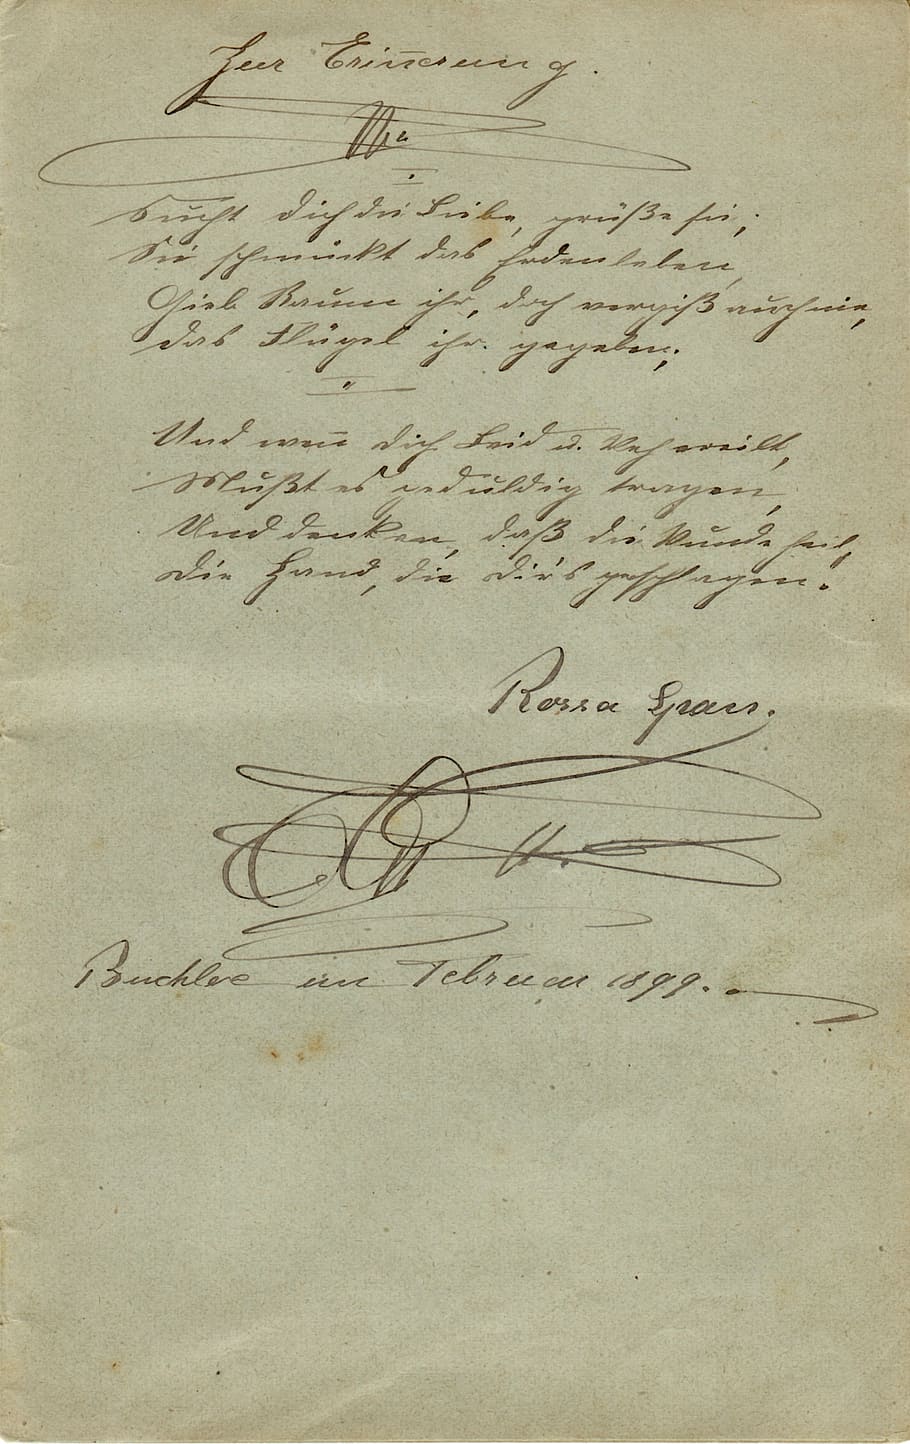 Zur Erin̄erung.
Sucht dich die Liebe, grüße sie;
Sie schmückt das Erdenleben,
Gieb Raum ihr, doch vergiß auch nie,
das Flügel ihr gegeben;
Und wen̄ dich Leid u. Weh ereilt,
Mußt es geduldig tragen,
Und denken, daß die Wunde heilt,
die Hand, die dir's geschlagen.
Rossa
im Februar 1899.